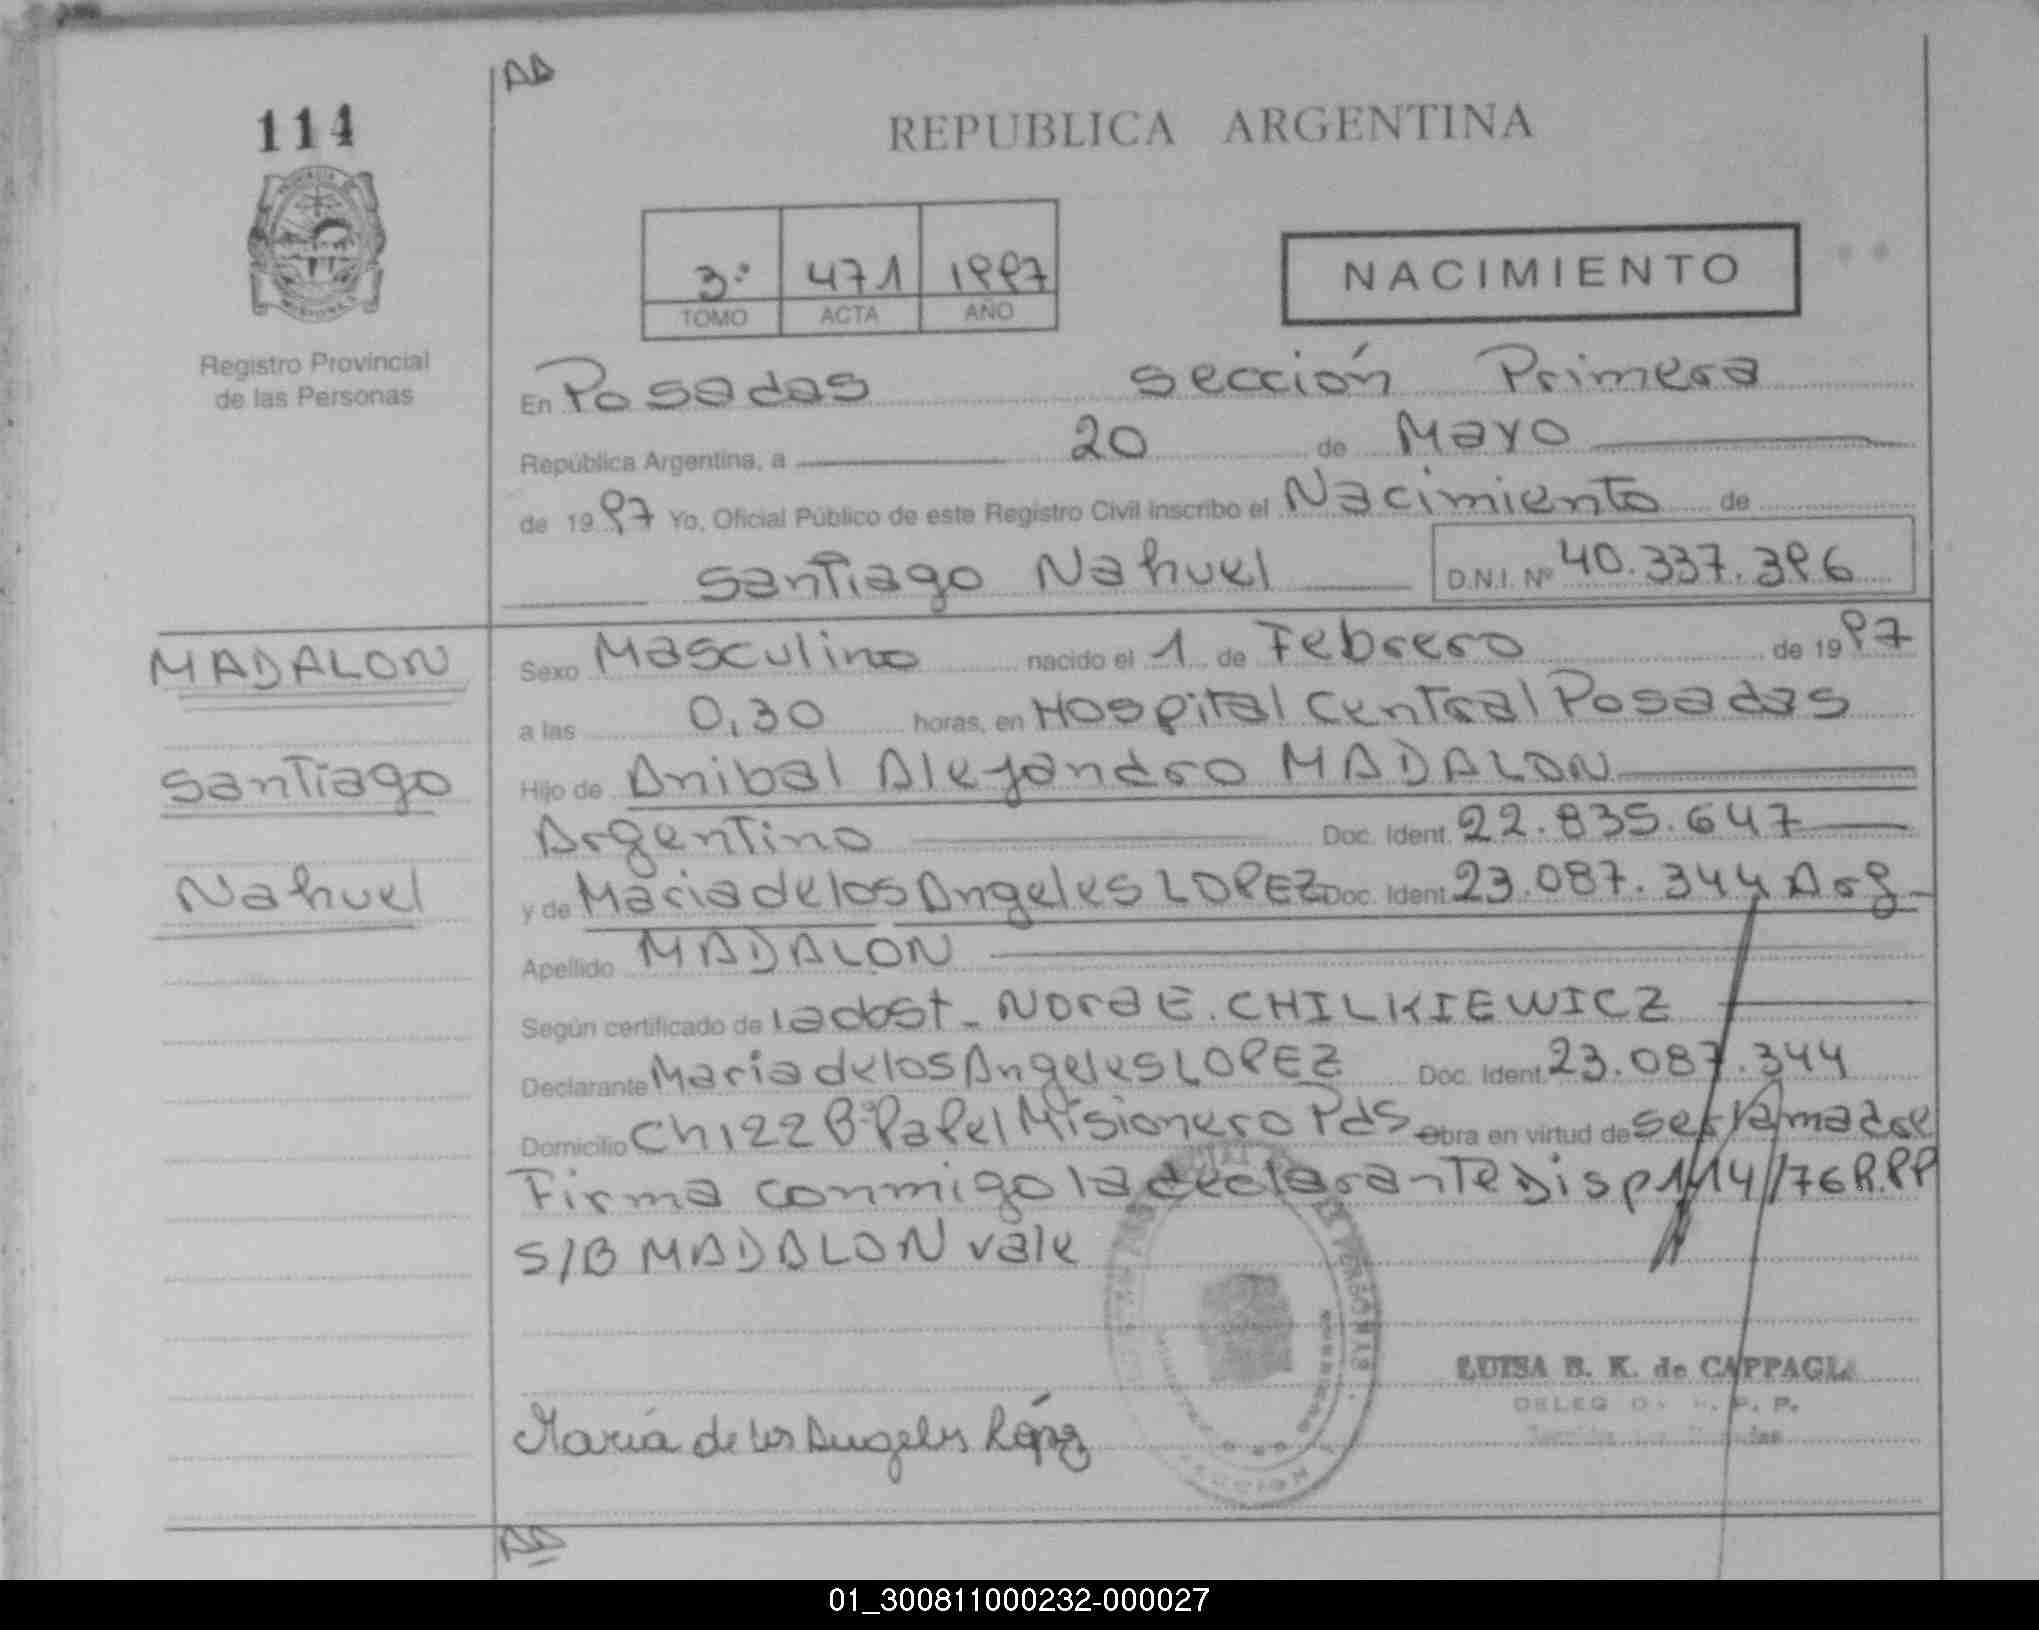 AA
114
REPUBLICA ARGENTINA
3º 471 1997
TOMO ACTA AÑO
NACIMIENTO
Registro Provincial
de las Personas
En Posadas sección Primera
República Argentina, a 20 de Mayo
de 1997 Yo, Oficial Público de este Registro Civil inscribo el Nacimiento de
Santiago Nahuel D.N.I. Nº 40.337.396
MADALON
Santiago
Nahuel
Sexo Masculino nacido el 1 de Febrero de 1997
a las 0,30 horas, en Hospital Central Posadas
Hijo de Anibal Alejandro MADALON
Argentino Doc. Ident. 22.835.647
y de Maria de los Angeles LOPEZ Doc. Ident. 23.087.344 Arg
Apellido MADALON
Según certificado de la obst. Nora E. CHILKIEWICZ
Declarante Maria de los Angeles LOPEZ Doc. Ident. 23.087.344
Domicilio Ch 122 Bº Papel Misionero Pds Obra en virtud de ser la madre
Firma conmigo la declarante Disp 114/76 R.PP
S/B MADALON vale
LUISA B. K. de CAPPAGLI
DELEG
María de los Angeles López
AA
01_300811000232-000027